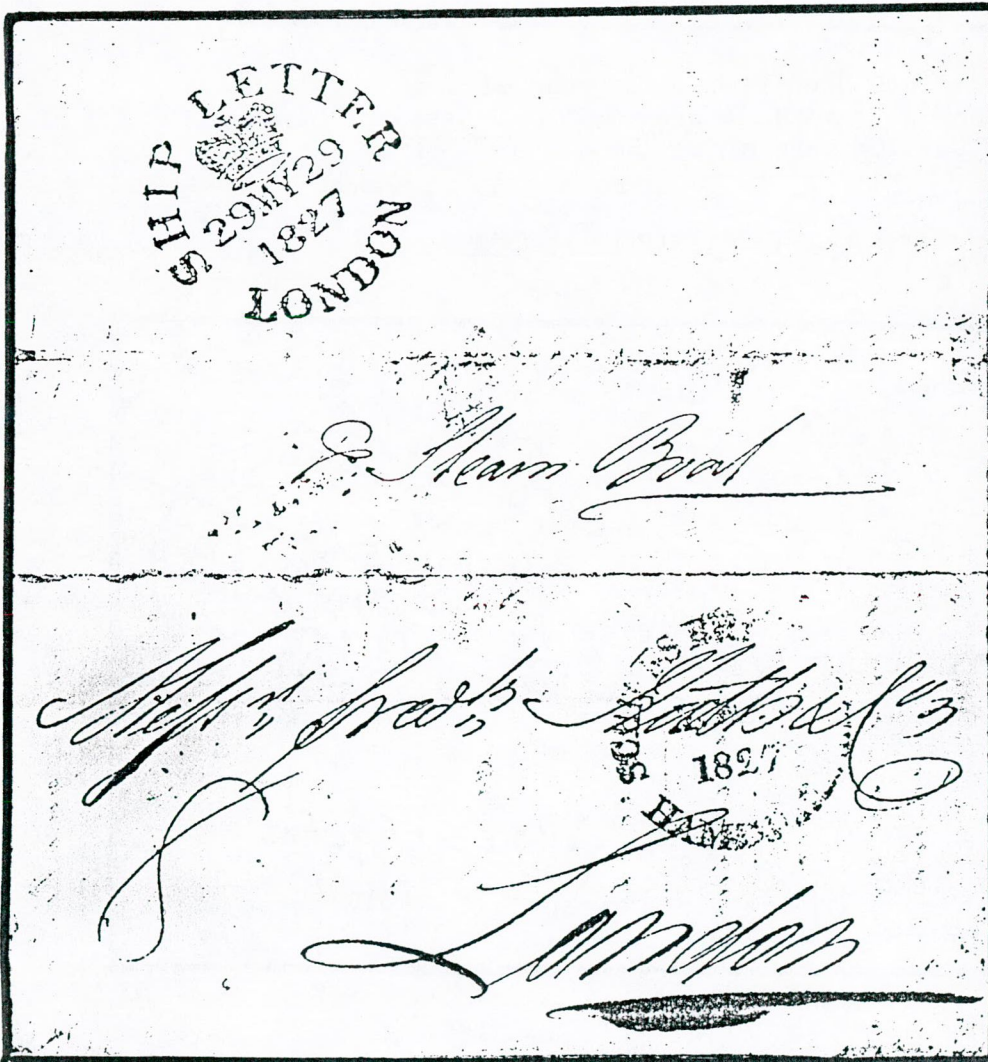 SHIP LETTER
29MY29
1827
LONDON
Steam Boat
Messrs Fredk &
1827
London